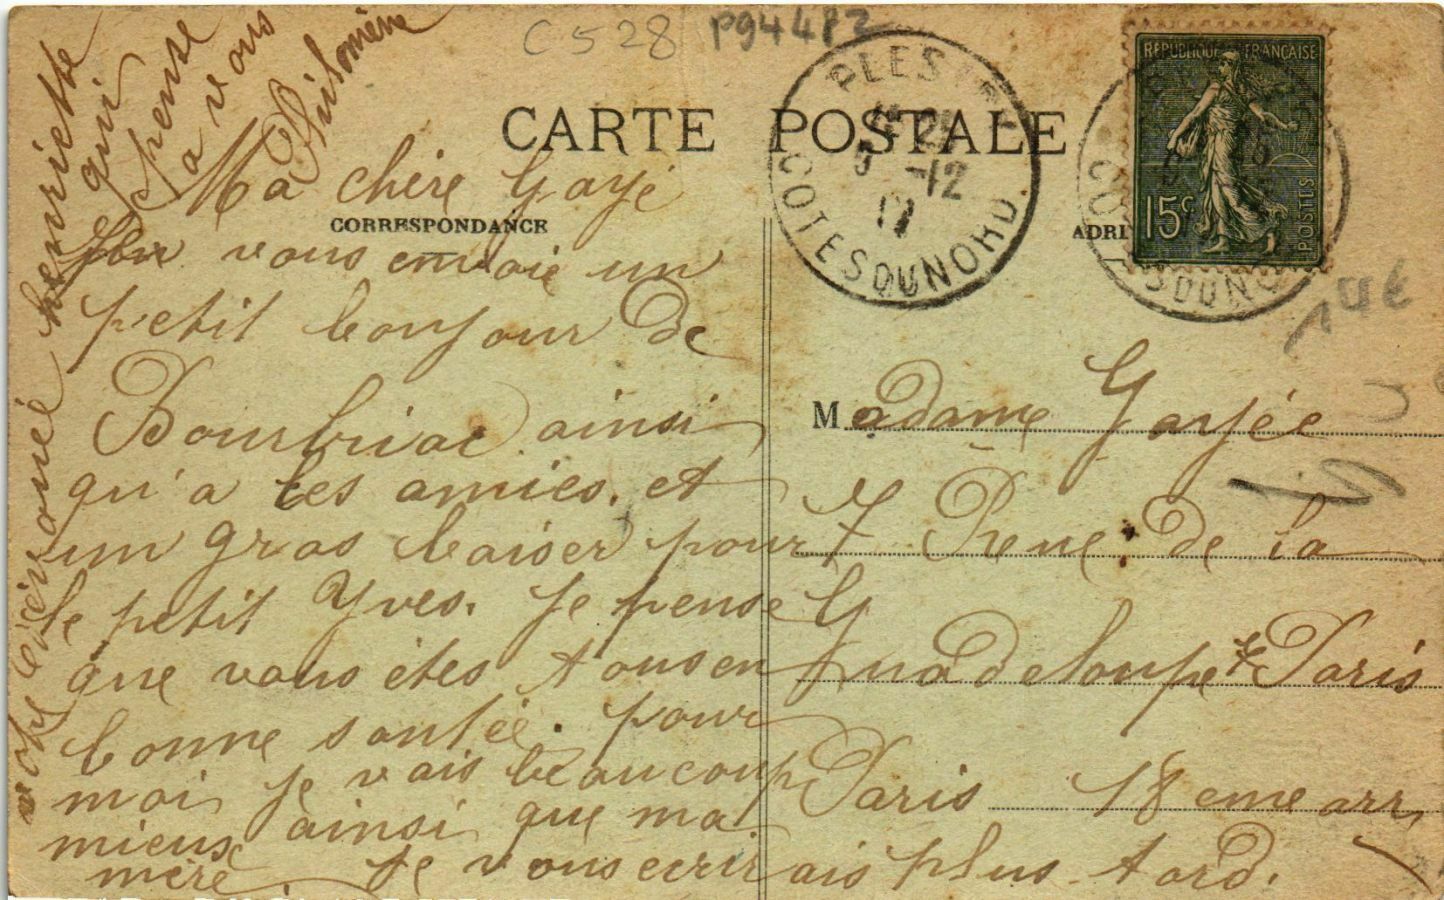 C 528 P94482
CARTE POSTALE
CORRESPONDANCE
COTES DU NORD
5 -12
REPUBLIQUE FRANCAISE
15c
POSTES
14€
Ma chère Gayé
vous envoie un
petit bonjour de
Bourbriac ainsi
qu'a les amies. et
un gros baiser pour
le petit Yves. Je pense
que vous êtes tous en
bonne santée. pour
moi je vais beaucoup
mieux ainsi que ma
mère. Je vous ecrirais plus tard.
votre dévouée henriette
qui
pense
a vous
Philomène
Madame Gayée
7 Rue de la
Guadeloupe Paris
Paris 18eme arr